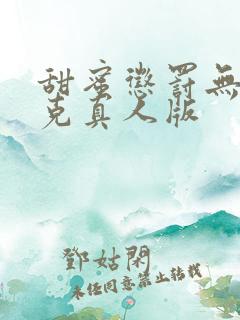 甜蜜懲罰無
克真人版
鄧姑閑
未经同意禁止转载